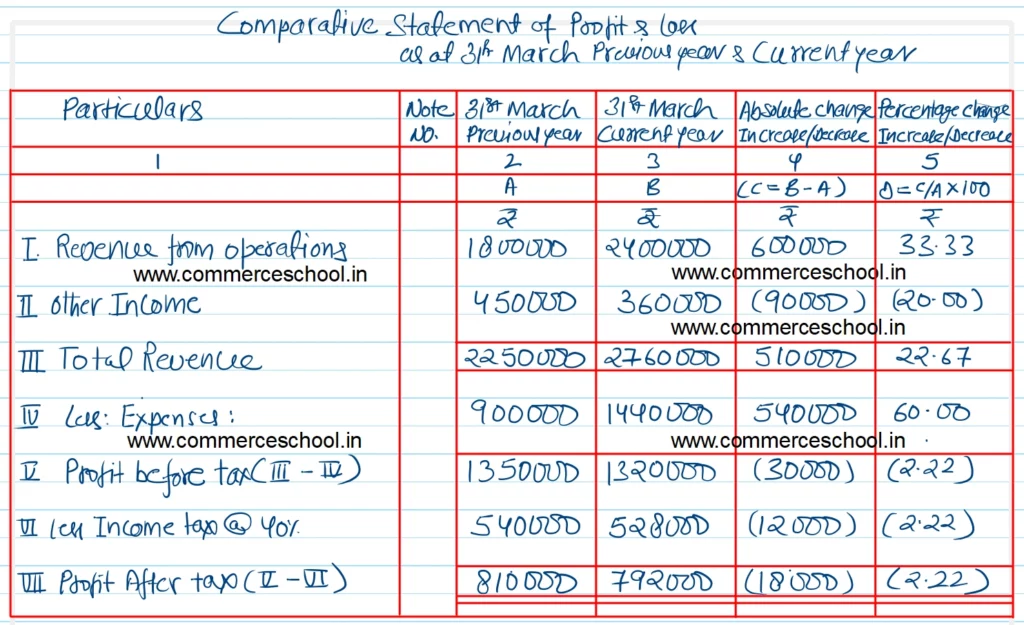 Comparative Statement of Profit & loss
as at 31st March Previous year & Current year
Particulars Note No. 31st March Previous year 31st March Current year Absolute change Increase/Decrease Percentage change Increase/Decrease
1 2 3 4 5
A B (C = B - A) D = C/A X 100
₹ ₹ ₹ ₹
I. Revenue from operations 1800000 2400000 600000 33.33
www.commerceschool.in www.commerceschool.in
II Other Income 450000 360000 (90000) (20.00)
www.commerceschool.in
III Total Revenue 2250000 2760000 510000 22.67
IV Less: Expenses: 900000 1440000 540000 60.00
www.commerceschool.in www.commerceschool.in
V Profit before tax (III - IV) 1350000 1320000 (30000) (2.22)
VI less Income tax @ 40% 540000 528000 (12000) (2.22)
VII Profit After tax (V - VI) 810000 792000 (18000) (2.22)